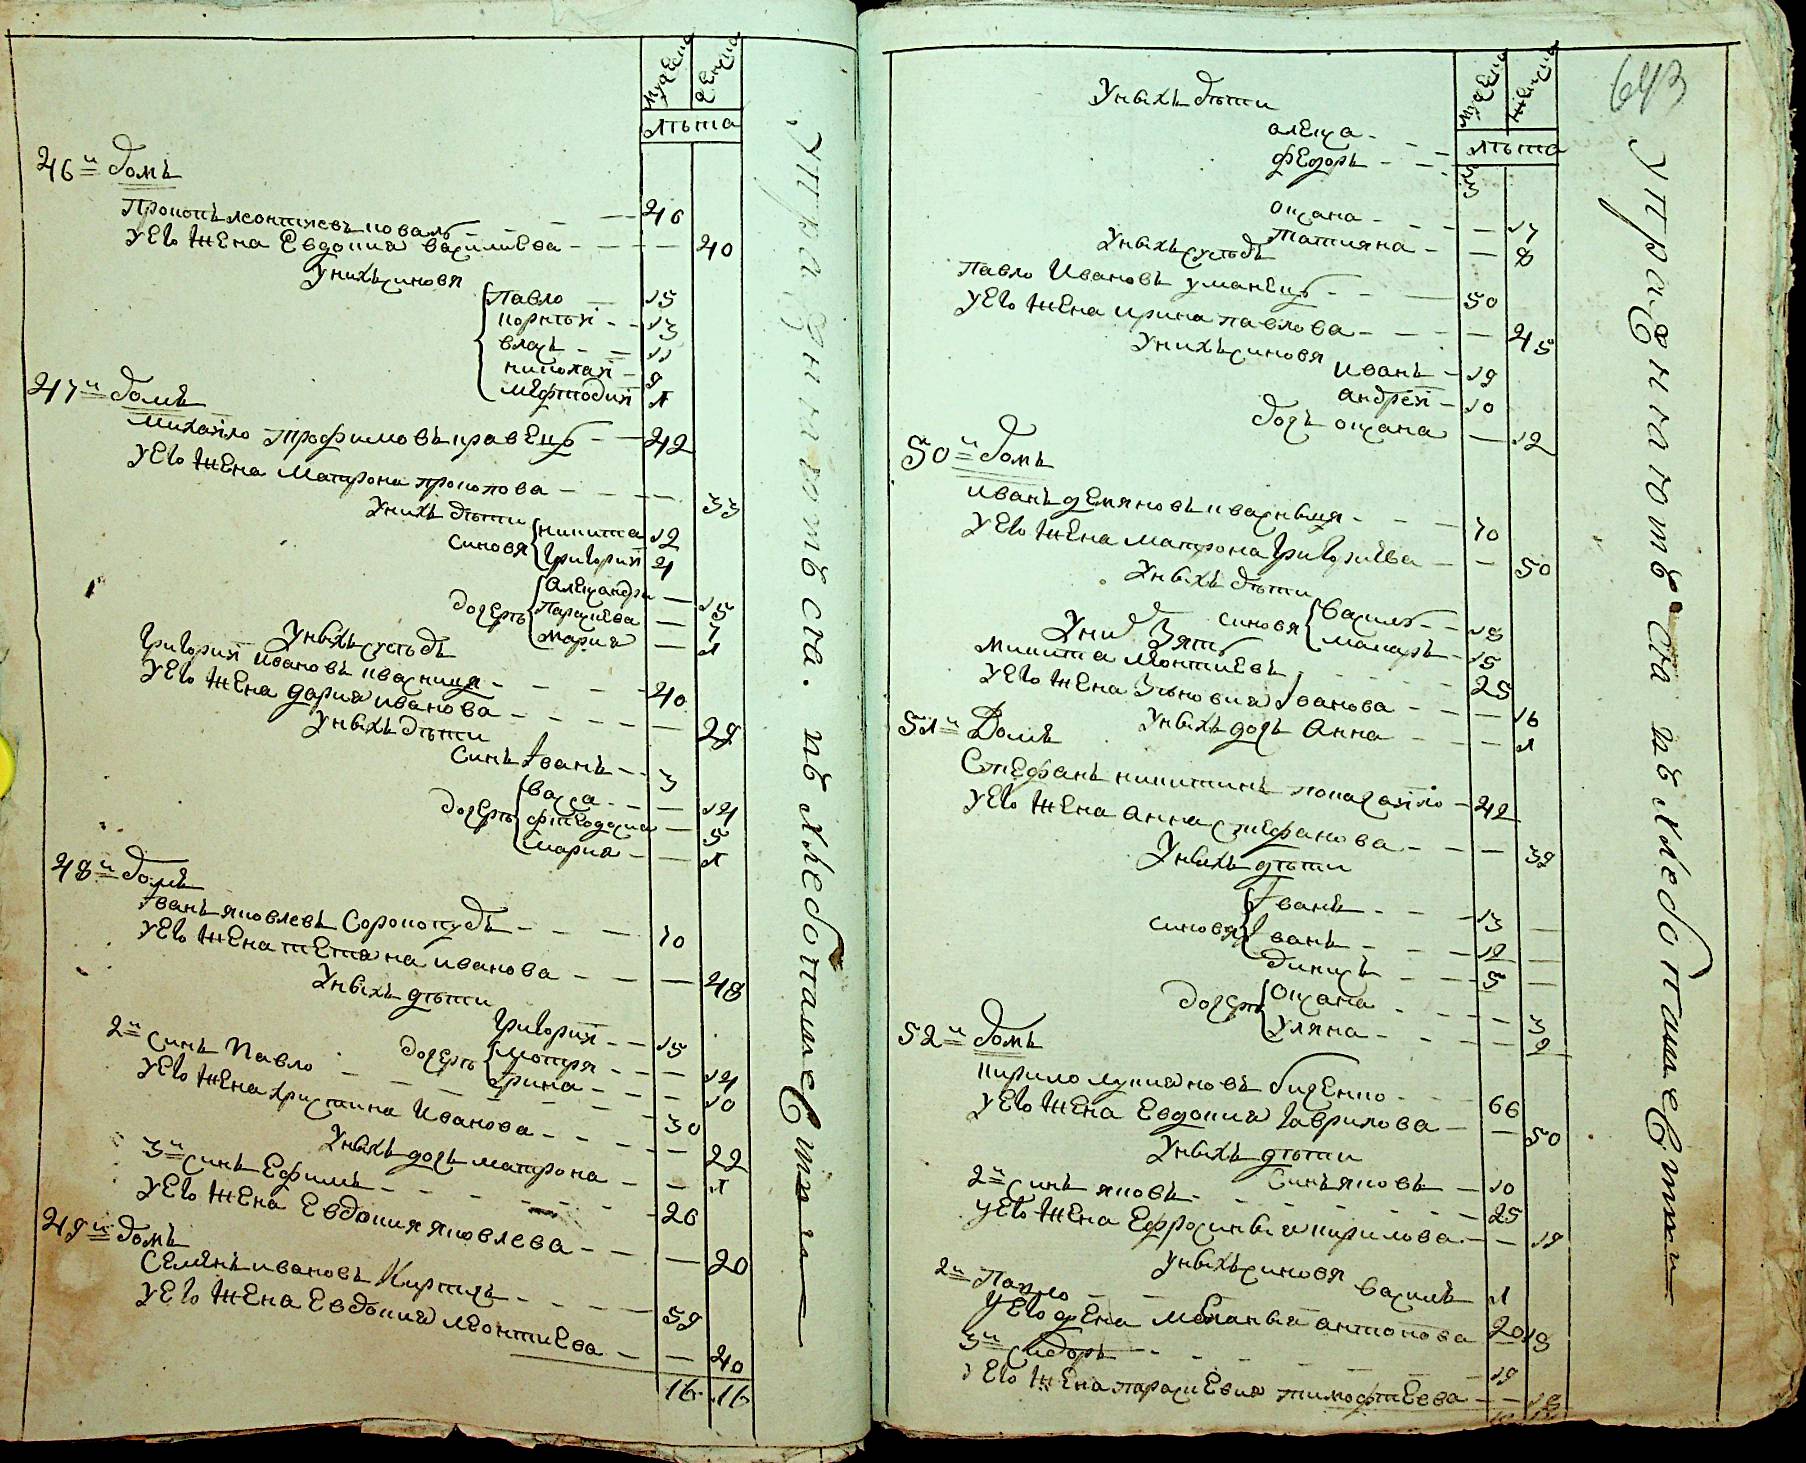 мужеска
женска
лѣта
46й домъ
Прокопъ леонтиевъ коваль 46
У его жена Евдокиа василиева 40
У нихъ синовя
Павло 15
корнѣй 13
власъ 11
николай 9
мефтодий 1
47й домъ
михайло трофимовъ кравецъ 42
У его жена Матрона прокопова 33
У нихъ дѣти
синовя никита 12
григорий 4
дочерѣ Александра 15
Параскева 7
мариа 1
У ныхъ сусѣдъ
григорий ивановъ квасница 40
У его жена дариа иванова 29
У ныхъ дѣти
синъ Іванъ 3
дочерѣ васса 14
фтеодосиа 5
мариа 1
48й домъ
Іванъ яковлевъ Сорокопудъ 70
У его жена тетяна иванова 48
У ныхъ дѣти
григорий 15
дочерѣ мотря 14
Ірина 10
2й синъ Павло 30
У его жена христина Иванова 22
У ныхъ дочь матрона 1
3й синъ Ефимъ 26
У его жена Евдокия яковлева 20
49й домъ
Семенъ ивановъ 59
У его жена Евдокиа леонтиева 40
16 16
Упражняются въ хлебопашестти
643
мужеска
женска
лѣта
У ныхъ дѣти
алекса
федоръ 3
оксана 17
татияна 8
У ныхъ сусѣдъ
Павло Ивановъ уманецъ 50
У его жена ирина павлова 45
У нихъ синовя
иванъ 19
андрей 10
дочъ оксана 12
50й домъ
иванъ демяновъ квасныця 70
У его жена матрона григориева 50
У ныхъ дѣти
синовя василь 18
макаръ 15
У них зять
микита леонтиевъ 25
У его жена Зѣновиа Іванова 16
У ныхъ дочъ Анна 1
51й Домъ
Стефанъ никитинъ 42
У его жена анна стефанова 39
У ныхъ дѣти
синовя Іванъ 13
Іванъ 12
динисъ 5
дочерѣ Оксана 3
уляна 2
52й домъ
кирило лукиановъ 66
У его жена Евдокиа гаврилова 50
У ныхъ дѣти
Синъ яковъ 10
2й синъ яковъ 25
У его жена Ефросиныа кирилова 19
У ныхъ синовя
василь 1
2й Павло 20
У его жена меланиа антонова 18
3й сидоръ 19
У его жена параскевиа тимофтеева 18
Упражняютъся въ хлебопашестти